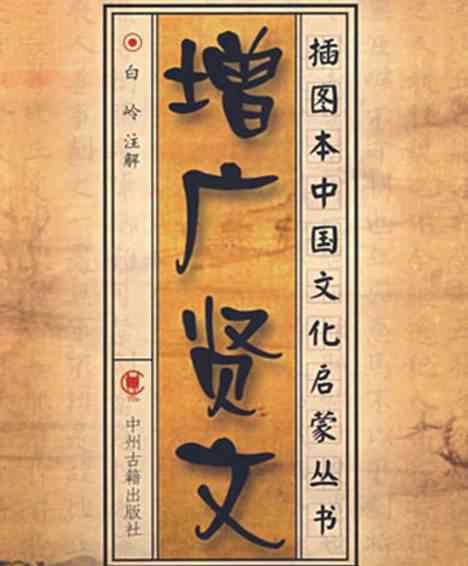 插图本中国文化启蒙丛书
增广贤文
白岭 注解
中州古籍出版社